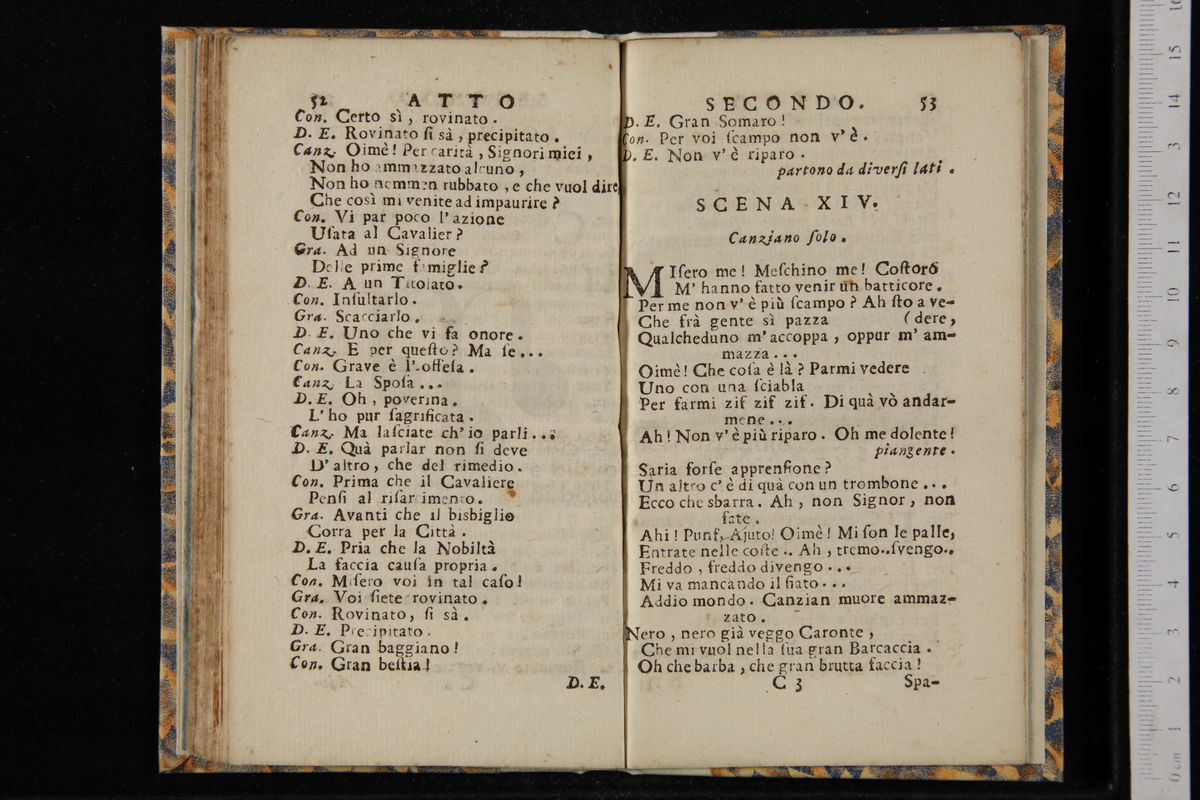 52 ATTO
Con. Certo sì, rovinato.
D. E. Rovinato ſi sà, precipitato.
Canz. Oimè! Per carità, Signori miei,
Non ho ammazzato alcuno,
Non ho nemmen rubbato, e che vuol dire,
Che così mi venite ad impaurire?
Con. Vi par poco l'azione
Uſata al Cavalier?
Gra. Ad un Signore
Delle prime famiglie?
D. E. A un Titolato.
Con. Inſultarlo.
Gra. Scacciarlo.
D. E. Uno che vi fa onore.
Canz. E per queſto? Ma ſe...
Con. Grave è l'offeſa.
Canz. La Spoſa...
D. E. Oh, poverina.
L'ho pur ſagrificata.
Canz. Ma laſciate ch'io parli...
D. E. Quà parlar non ſi deve
D'altro, che del rimedio.
Con. Prima che il Cavaliere
Penſi al riſarcimento.
Gra. Avanti che il bisbiglio
Corra per la Città.
D. E. Pria che la Nobiltà
La faccia cauſa propria.
Con. Miſero voi in tal caſo!
Gra. Voi ſiete rovinato.
Con. Rovinato, ſi sà.
D. E. Precipitato.
Gra. Gran baggiano!
Con. Gran beſtia!
D. E.
SECONDO. 53
D. E. Gran Somaro!
Con. Per voi ſcampo non v'è.
D. E. Non v'è riparo.
partono da diverſi lati.
SCENA XIV.
Canziano ſolo.
MIſero me! Meſchino me! Coſtoro
M'hanno fatto venir un batticore.
Per me non v'è più ſcampo? Ah ſto a ve-
Che frà gente sì pazza (dere,
Qualcheduno m'accoppa, oppur m'am-
mazza...
Oimè! Che coſa è là? Parmi vedere
Uno con una ſciabla
Per farmi zif zif zif. Di quà vò andar-
mene...
Ah! Non v'è più riparo. Oh me dolente!
piangente.
Saria forſe apprenſione?
Un altro c'è di quà con un trombone...
Ecco che sbarra. Ah, non Signor, non
fate.
Ahi! Punf, Ajuto! Oimè! Mi ſon le palle,
Entrate nelle coſte.. Ah, tremo..ſvengo..
Freddo, freddo divengo...
Mi va mancando il fiato...
Addio mondo. Canzian muore ammaz-
zato.
Nero, nero già veggo Caronte,
Che mi vuol nella ſua gran Barcaccia.
Oh che barba, che gran brutta faccia!
C 3 Spa-
0 cm 1 2 3 4 5 6 7 8 9 10 11 12 13 14 15 16